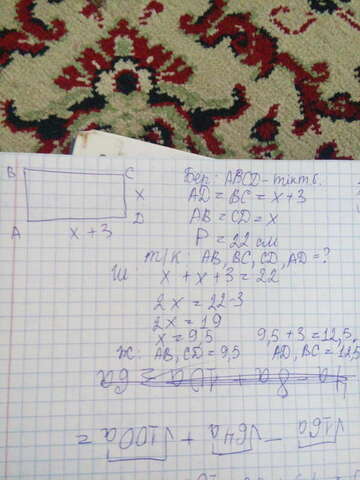 B C
x
D
A x + 3
Бер: ABCD - тікт б.
AD = BC = x + 3
AB = CD = x
P = 22 см
Т/К: AB, BC, CD, AD = ?
Ш: x + x + 3 = 22
2x = 22-3
2x = 19
x = 9,5 9,5 + 3 = 12,5.
Ж: AB, CD = 9,5 AD, BC = 12,5
4a - 8a + 10a = 6a
√16a - √64a + √100a =